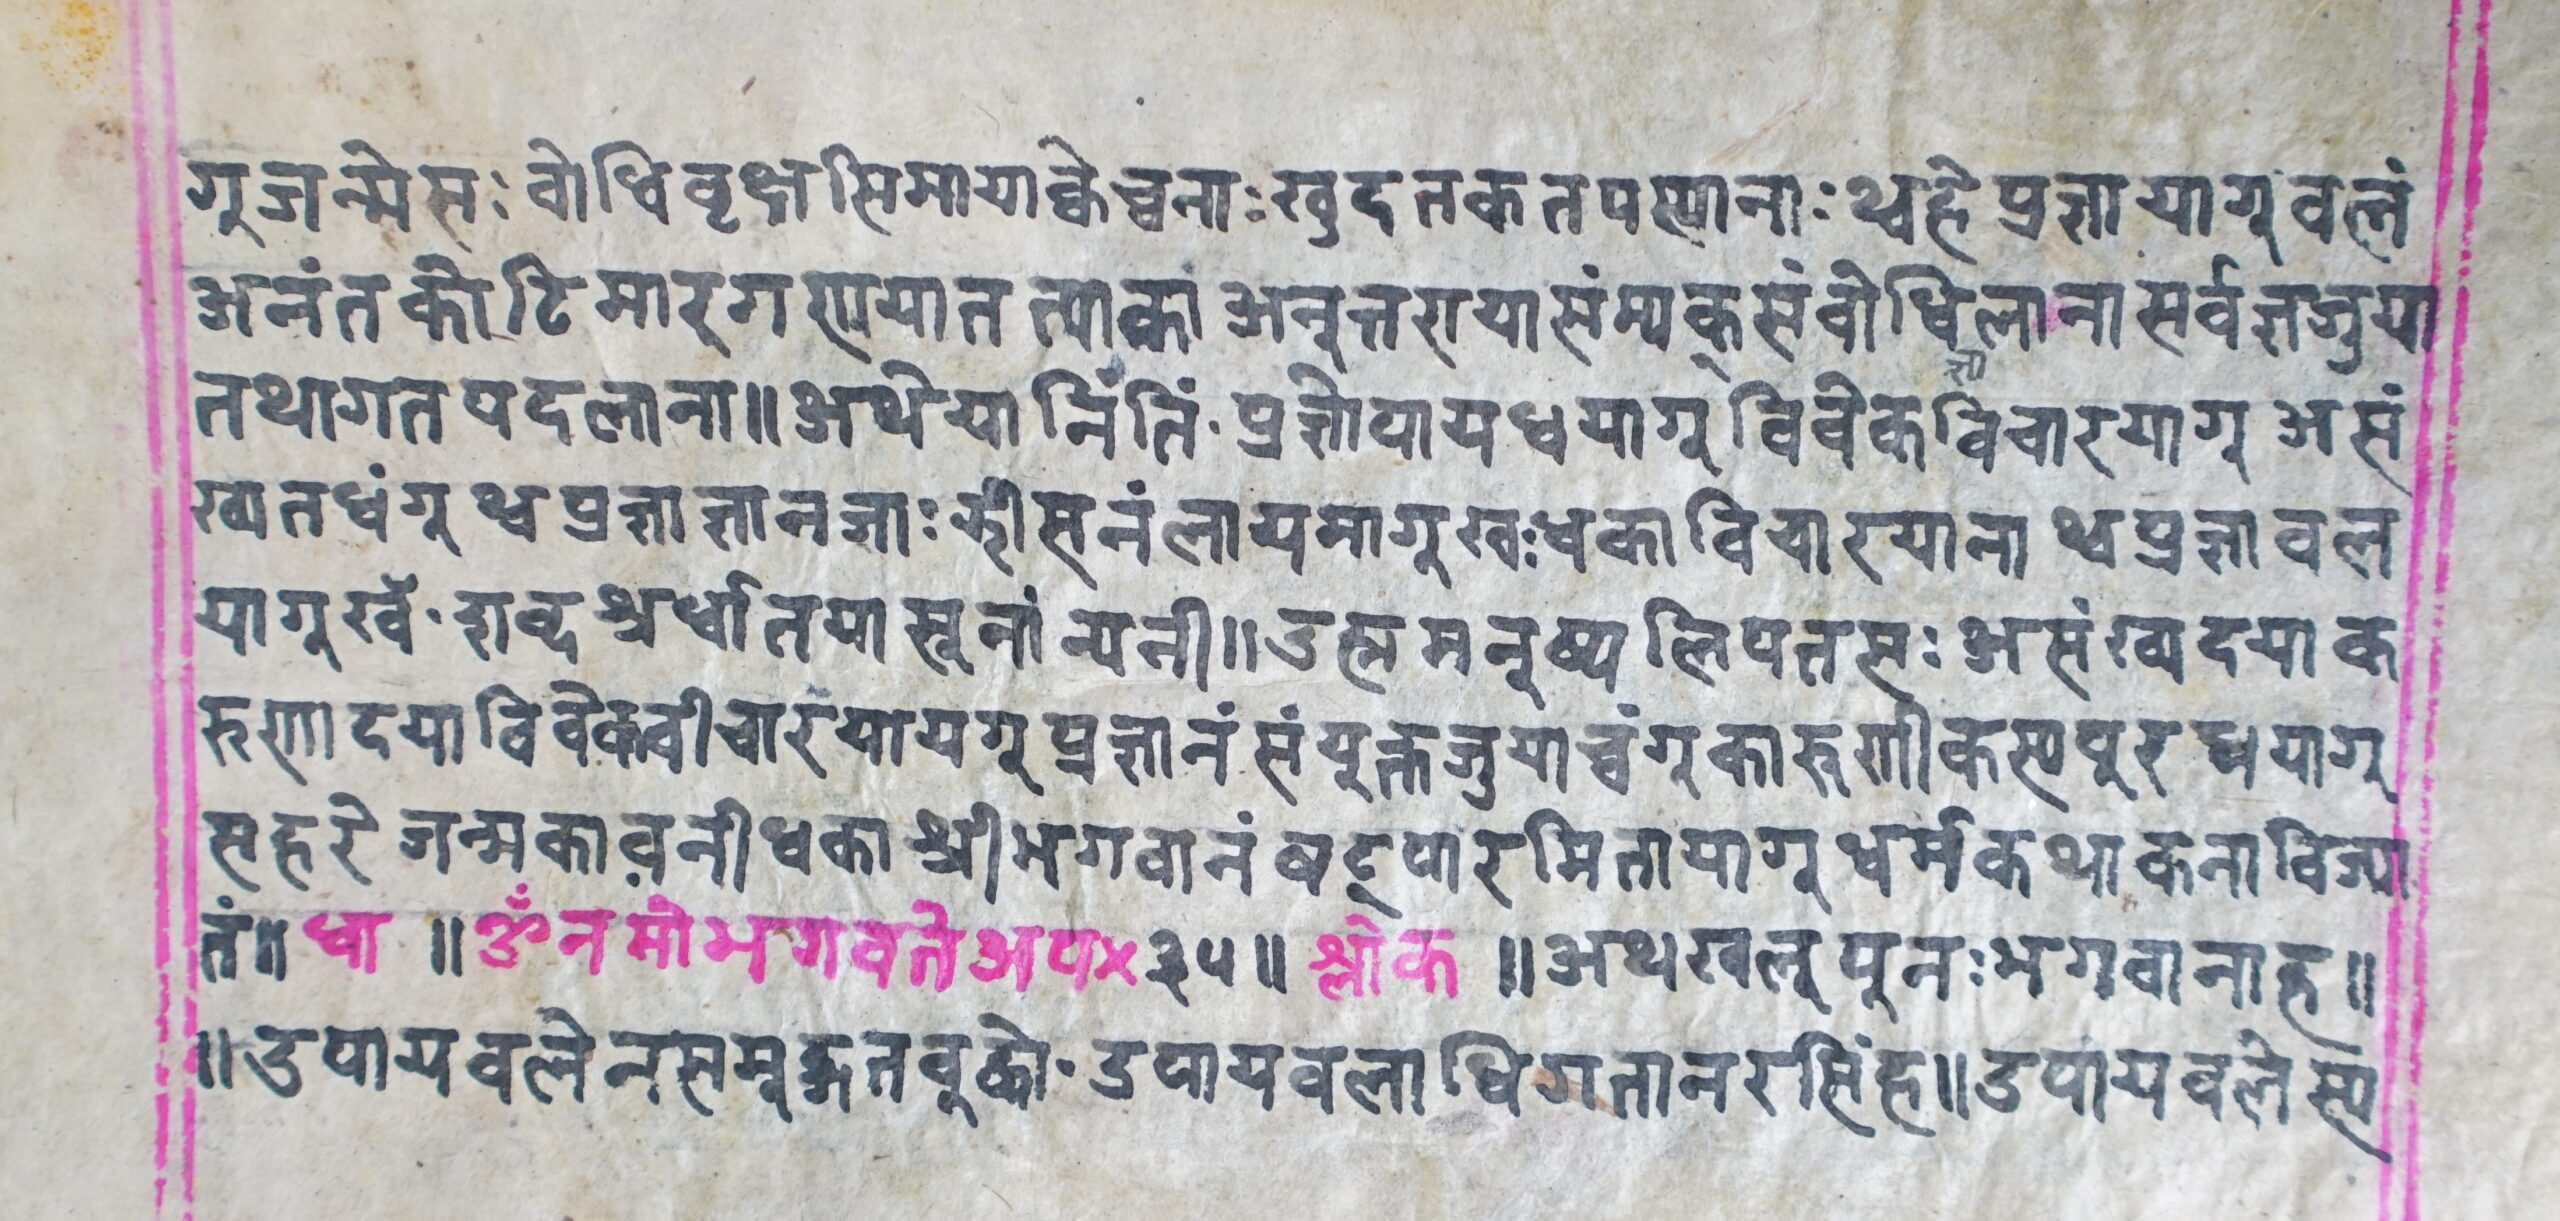 गू जन्मे सः वोधि वृक्ष सिमाया क्वे च्वनाः खुद तक तपस्यानाः थ्वहे प्रज्ञा यागू वलं
अनंत कोटि मार्‌गणयात त्याका अनूत्तराया संम्यक् संवोधि लाना सर्वज्ञ जुया
तथागत पद लाना॥ अथेया निंतिं· प्रज्ञोपाय धयागू विवेक विचारयागू असं
ख्यत धंगू थ्व प्रज्ञा ज्ञानज्ञाः झीसनं लायमागू खः धका विचारयाना थ्व प्रज्ञा वल
यागू खँ· शव्द श्रर्धातया स्वूनां न्यनी॥ उह्म मनूष्य लिपतसः असंख्य दया क
रुणा दया विवेकवीचारयायगू प्रज्ञानं संयूक्त जुयाच्वंगू कारूणीकस्य पूर धयागू
सहरे जन्मकावनी धका श्रीभगवानं षद्पारमितायागू धर्मकथा कना विज्या
तं॥ धा ॥ ॐ नमो भगवते अप× ३५॥ श्लोक ॥ अथ खलू पूनः भगवानाह॥
॥ उपाय वलेन समूद्गत वूद्धो· उपाय वलाधिगता नरसिंह॥ उपाय वलेस्य